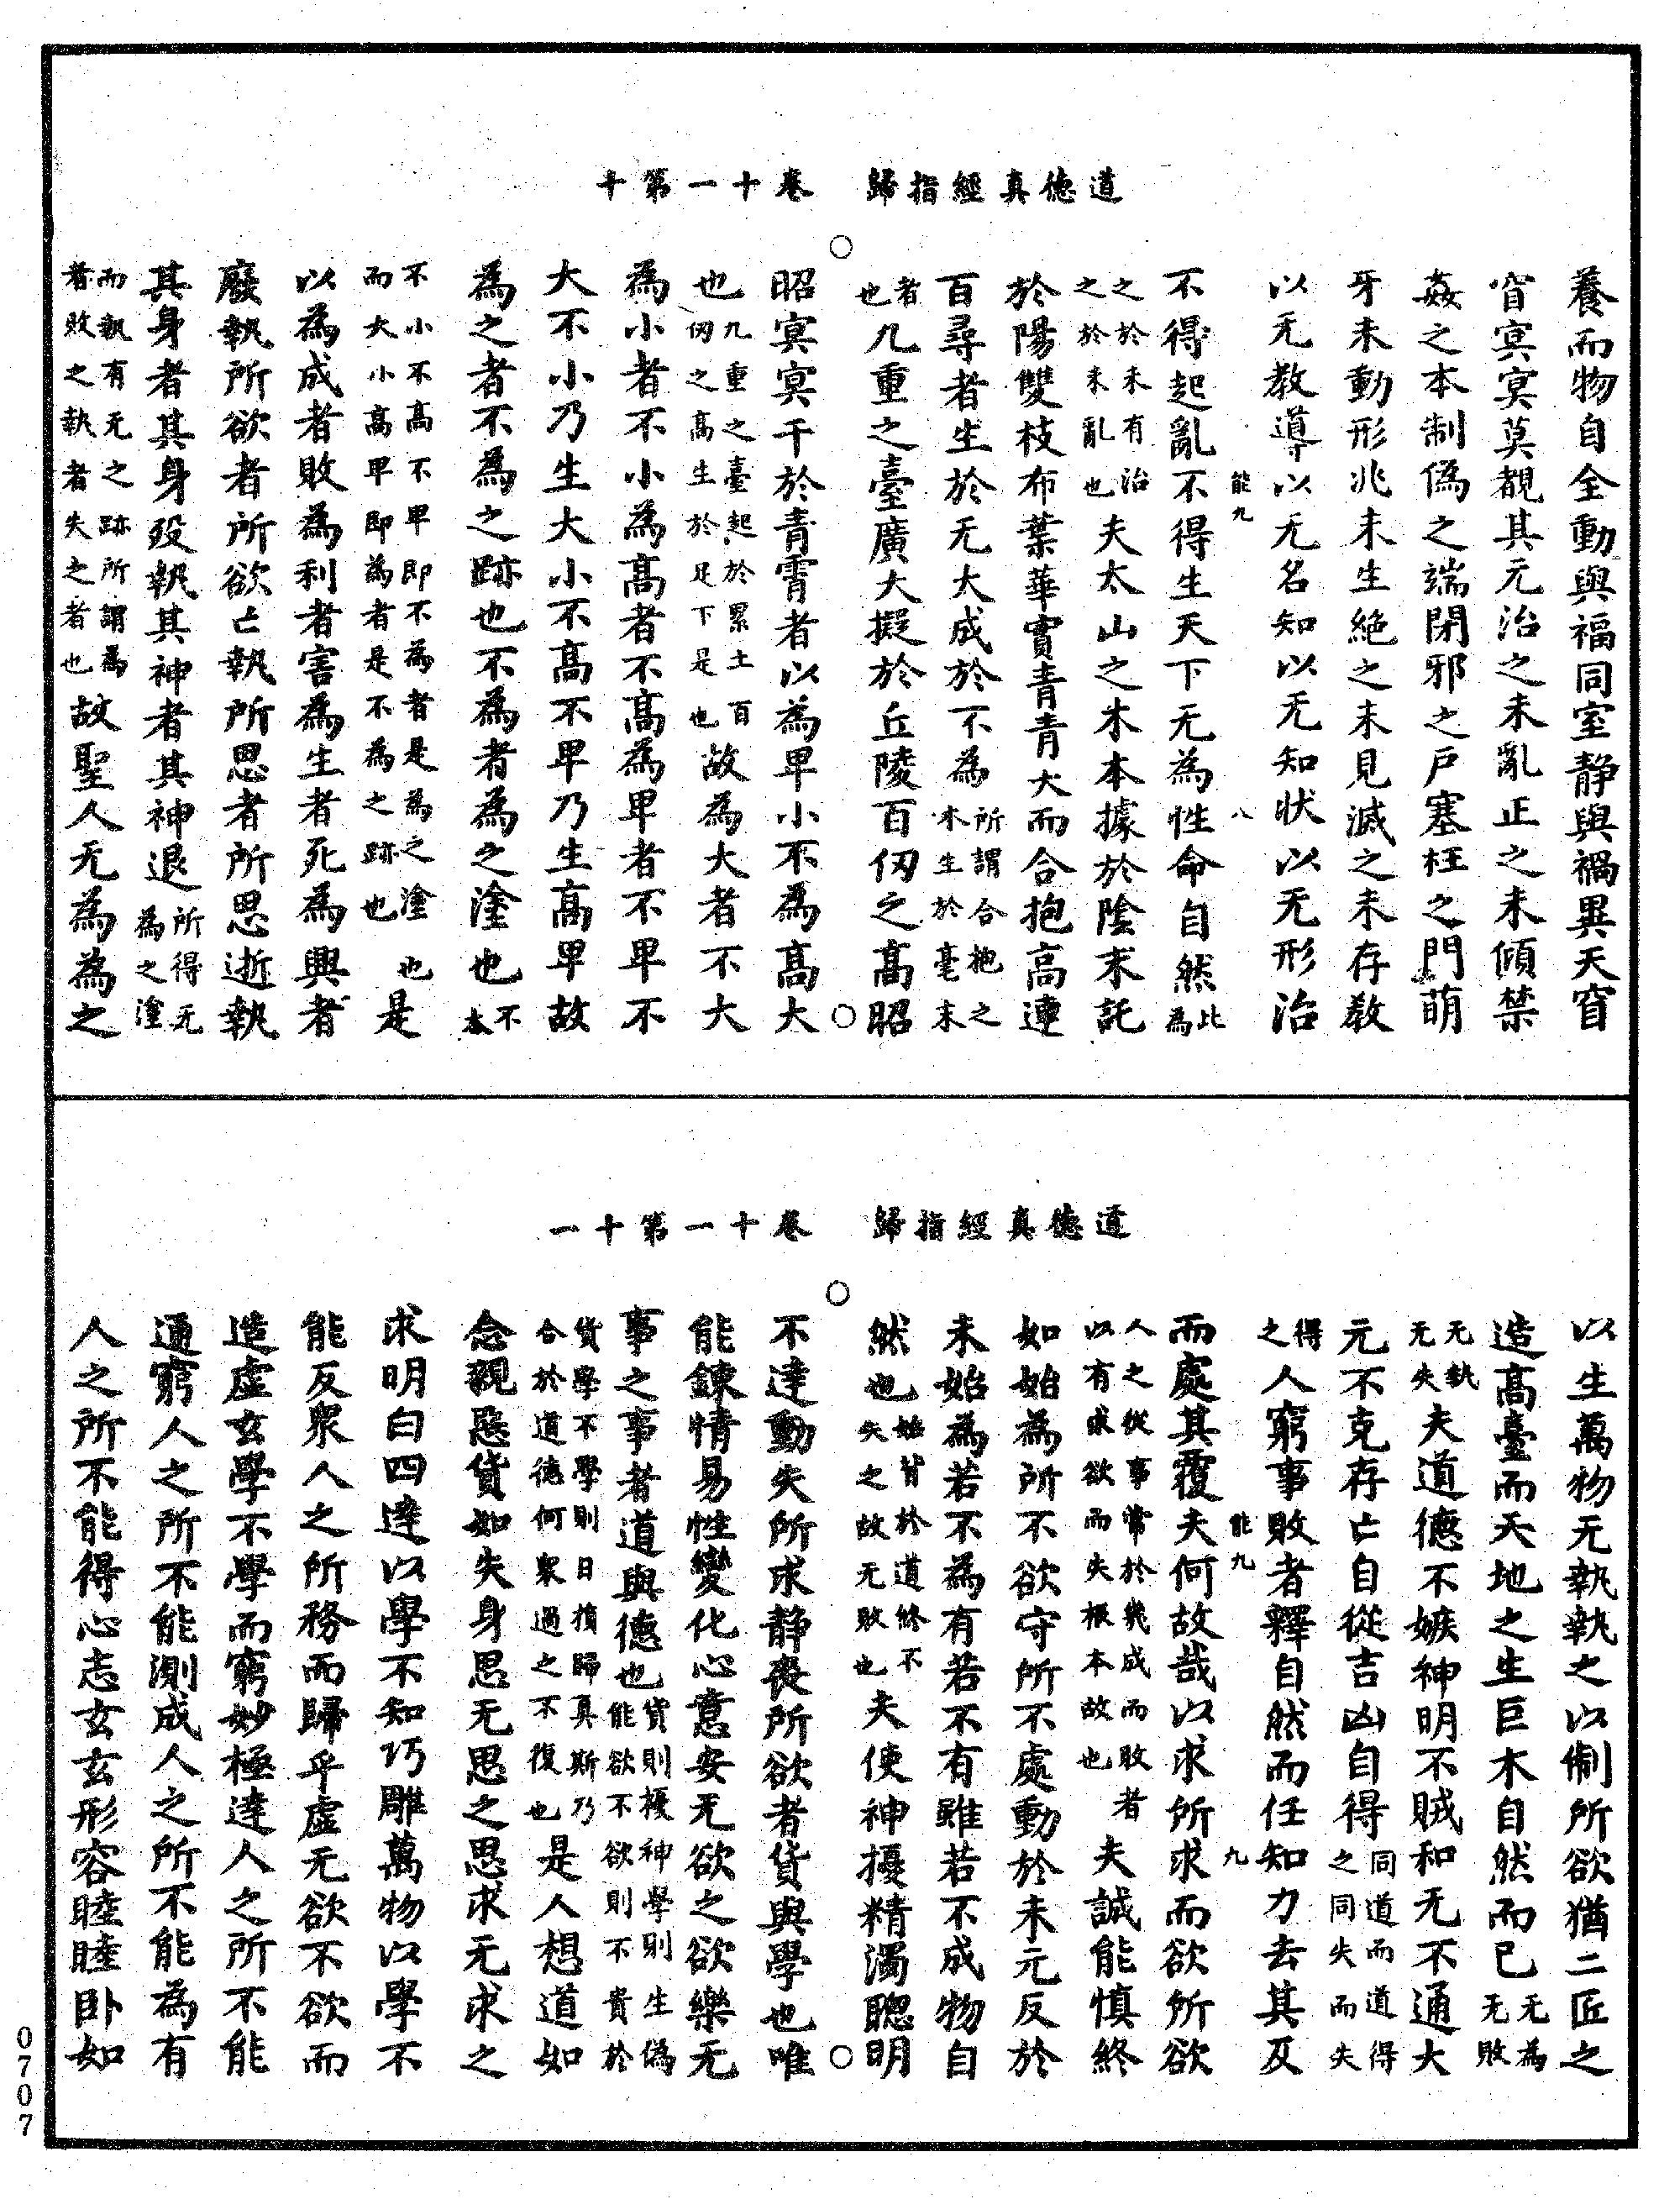 道德真經指歸　卷十一第十
養而物自全動與福同室静與禍異天窅
窅冥冥莫覩其元治之未亂正之未傾禁
姦之本制偽之端閉邪之戶塞枉之門萌
牙未動形兆未生絶之未見滅之未存教
以无教導以无名知以无知狀以无形治
能九　八
不得起亂不得生天下无為性命自然此為
之於未有治之於未亂也夫太山之木本據於陰末託
於陽雙枝布葉華實青青大而合抱高連
百尋者生於无大成於不為所謂合抱之木生於毫末
者也九重之臺廣大擬於丘陵百仞之高昭
昭冥冥干於青霄者以為卑小不為高大
也九重之臺起於累土百仞之高生於足下是也故為大者不大
為小者不小為高者不高為卑者不卑不
大不小乃生大小不高不卑乃生高卑故
為之者不為之跡也不為者為之塗也不本
不小不高不卑即不為者是為之塗也而大小高卑即為者是不為之跡也是
以為成者敗為利者害為生者死為興者
廢執所欲者所欲亡執所思者所思逝執
其身者其身歿執其神者其神退所得无為之塗
而執有无之跡所謂為者敗之執者失之者也故聖人无為為之
道德真經指歸　卷十一第十一
以生萬物无執執之以制所欲猶二匠之
造高臺而天地之生巨木自然而已无為无敗
无執无失夫道德不嫉神明不賊和无不通大
元不克存亡自從吉凶自得同道而道得之同失而失
得之人窮事敗者釋自然而任知力去其及
能九　九
而處其覆夫何故哉以求所求而欲所欲
人之從事常於幾成而敗者以有求欲而失根本故也夫誠能慎終
如始為所不欲守所不處動於未元反於
未始為若不為有若不有雖若不成物自
然也始皆於道終不失之故无敗也夫使神擾精濁聰明
不達動失所求静喪所欲者貨與學也唯
能鍊情易性變化心意安无欲之欲樂无
事之事者道與德也貨則擾神學則生偽能欲不欲則不貴於
貨學不學則日損歸真斯乃合於道德何衆過之不復也是人想道如
念親惡貨如失身思无思之思求无求之
求明白四達以學不知巧雕萬物以學不
能反衆人之所務而歸乎虛无欲不欲而
造虛玄學不學而窮妙極達人之所不能
通窮人之所不能測成人之所不能為有
人之所不能得心志玄玄形容睦睦卧如
0707